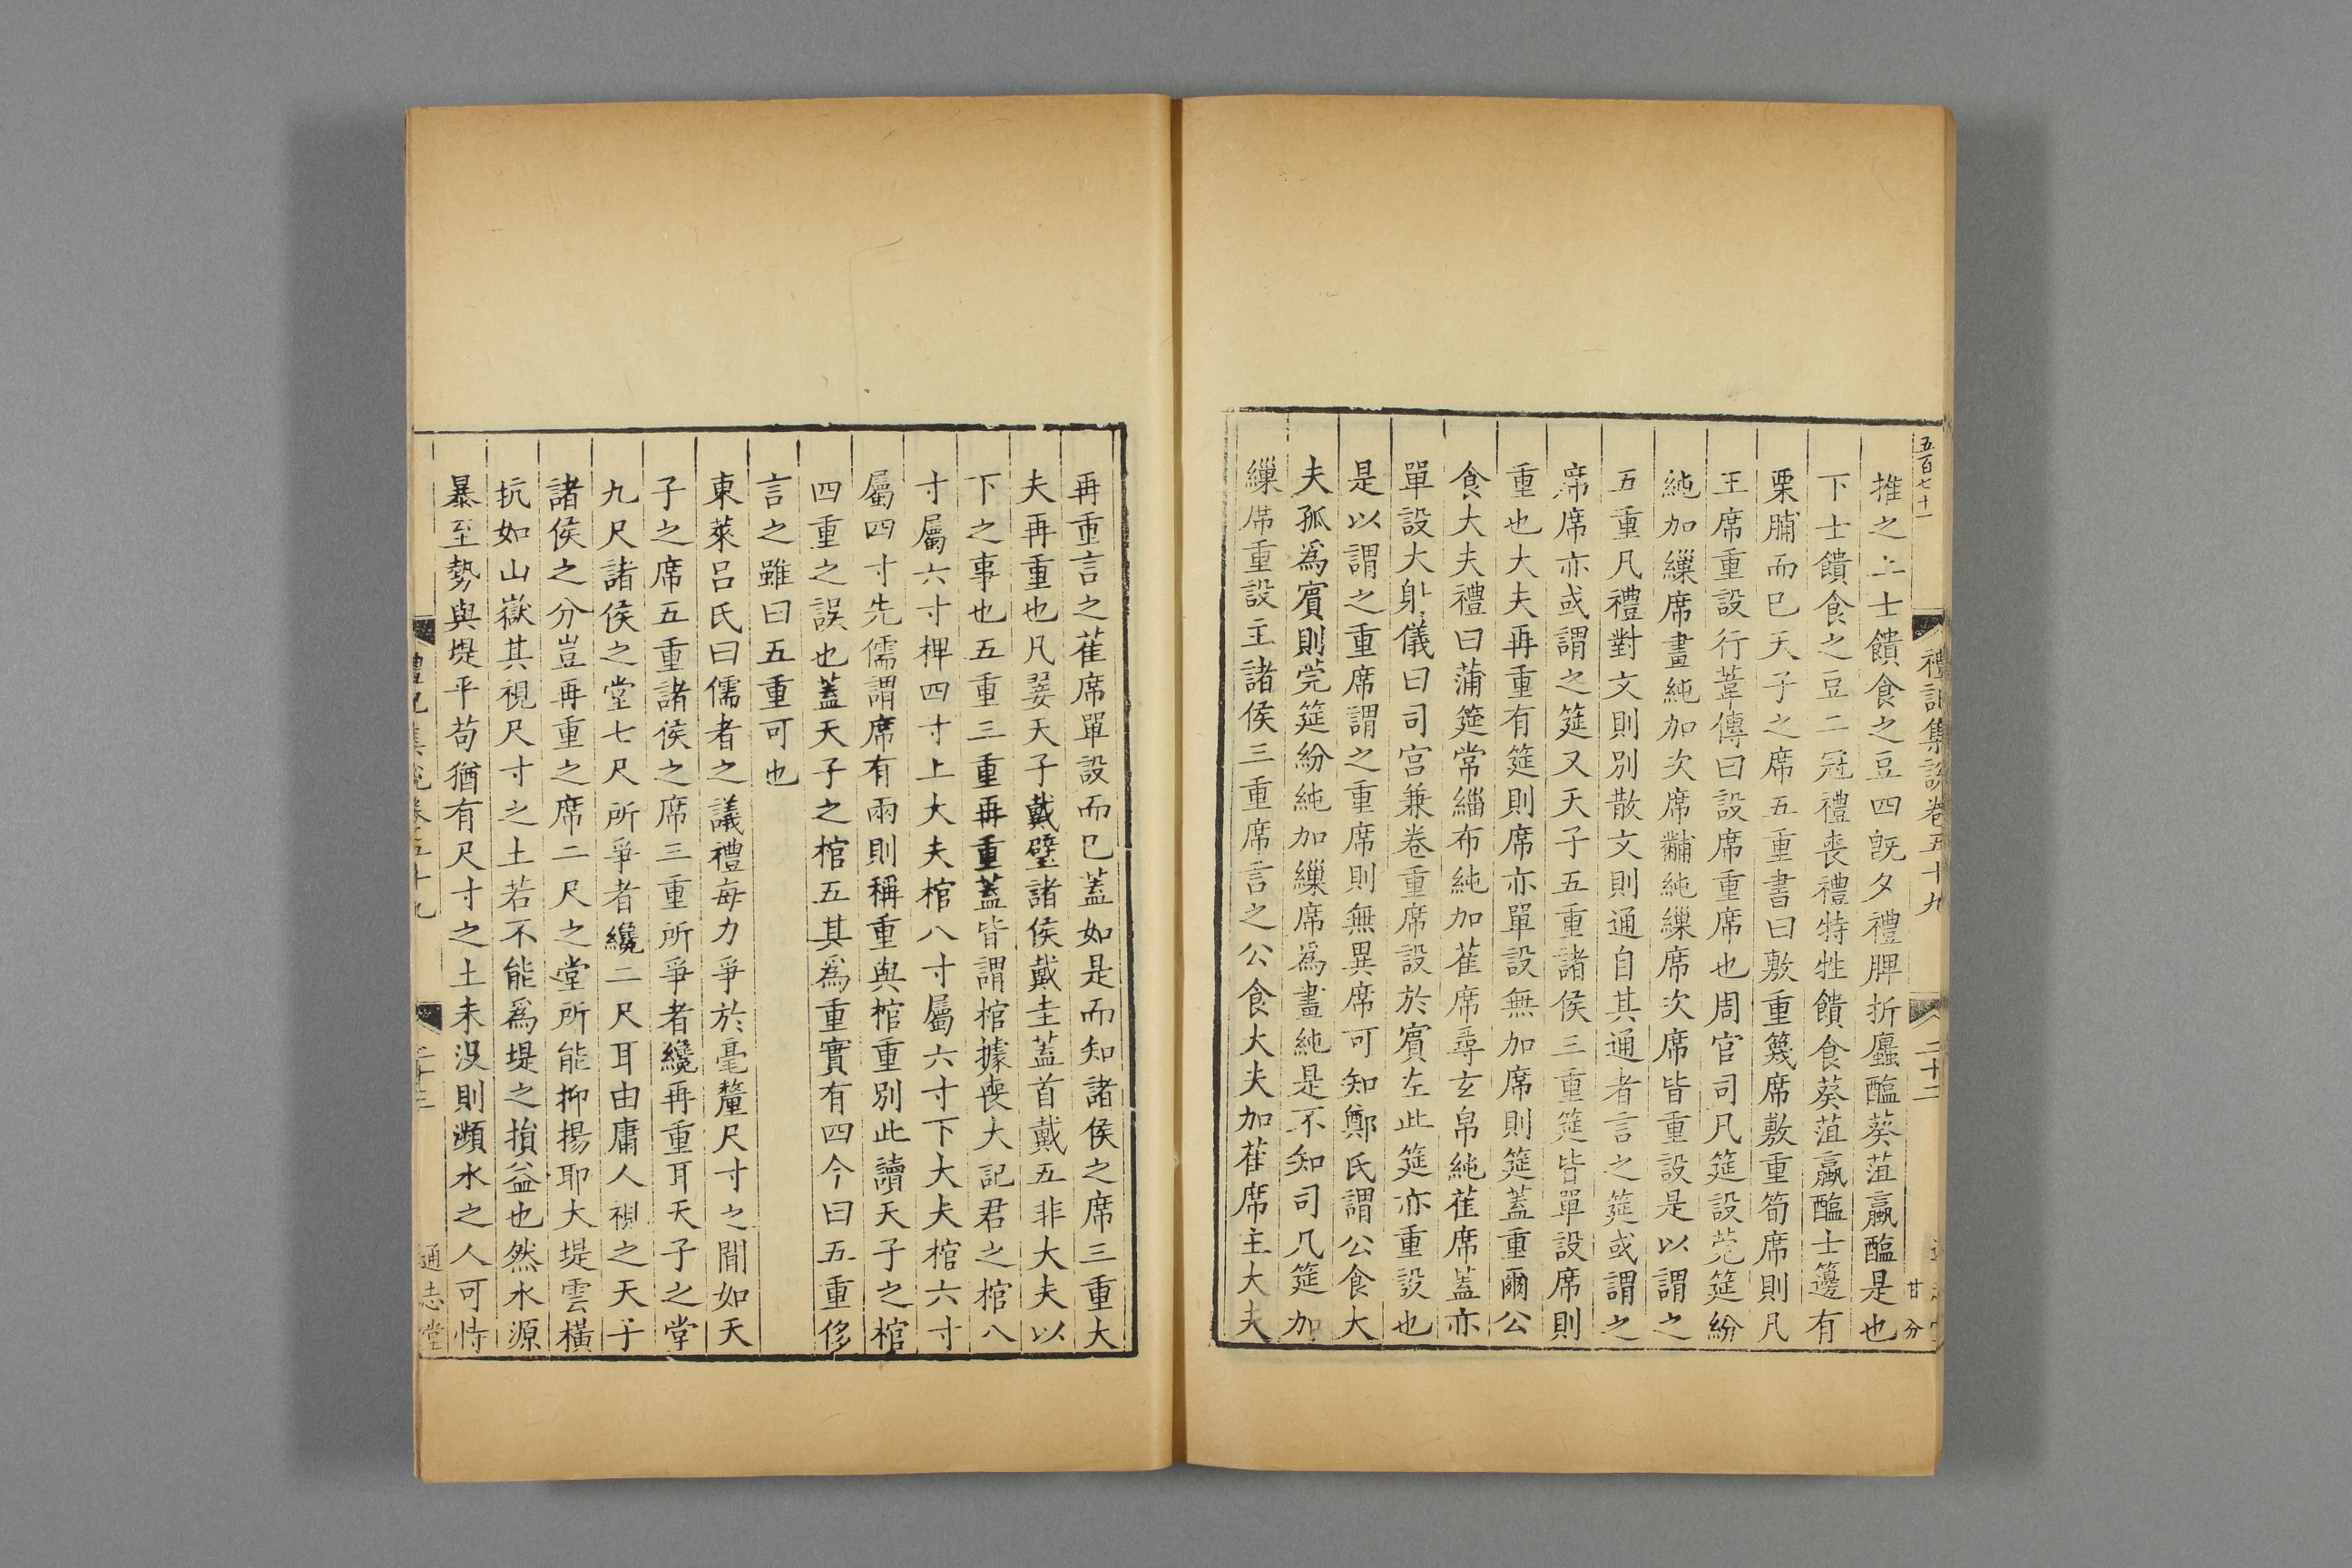 五百七十一
禮記集說卷五十九
二十二
甘 分
推之上士饋食之豆四旣夕禮脾折蠯醢葵菹蠃醢是也
下士饋食之豆二冠禮喪禮特牲饋食葵菹蠃醢士籩有
栗脯而已天子之席五重書曰敷重篾席敷重筍席則凡
王席重設行葦傳曰設席重席也周官司几筵設莞筵紛
純加繅席畫純加次席黼純繅席次席皆重設是以謂之
五重凡禮對文則別散文則通自其通者言之筵或謂之
席席亦或謂之筵又天子五重諸侯三重筵皆單設席則
重也大夫再重有筵則席亦單設無加席則筵蓋重爾公
食大夫禮曰蒲筵常緇布純加萑席尋玄帛純萑席蓋亦
單設大射儀曰司宮兼卷重席設於賓左此筵亦重設也
是以謂之重席謂之重席則無異席可知鄭氏謂公食大
夫孤爲賓則莞筵紛純加繅席爲畫純是不知司几筵加
繅席重設主諸侯三重席言之公食大夫加萑席主大夫
再重言之萑席單設而已蓋如是而知諸侯之席三重大
夫再重也凡翣天子戴璧諸侯戴圭蓋首戴五非大夫以
下之事也五重三重再重蓋皆謂棺據喪大記君之棺八
寸屬六寸椑四寸上大夫棺八寸屬六寸下大夫棺六寸
屬四寸先儒謂席有兩則稱重與棺重別此讀天子之棺
四重之誤也蓋天子之棺五其爲重實有四今曰五重侈
言之雖曰五重可也
東萊呂氏曰儒者之議禮每力爭於毫釐尺寸之間如天
子之席五重諸侯之席三重所爭者纔再重耳天子之堂
九尺諸侯之堂七尺所爭者纔二尺耳由庸人視之天子
諸侯之分豈再重之席二尺之堂所能抑揚耶大堤雲橫
抗如山嶽其視尺寸之土若不能爲堤之損益也然水源
暴至勢與堤平苟猶有尺寸之土未沒則瀕水之人可恃
禮記集說卷五十九
二十三
通志堂